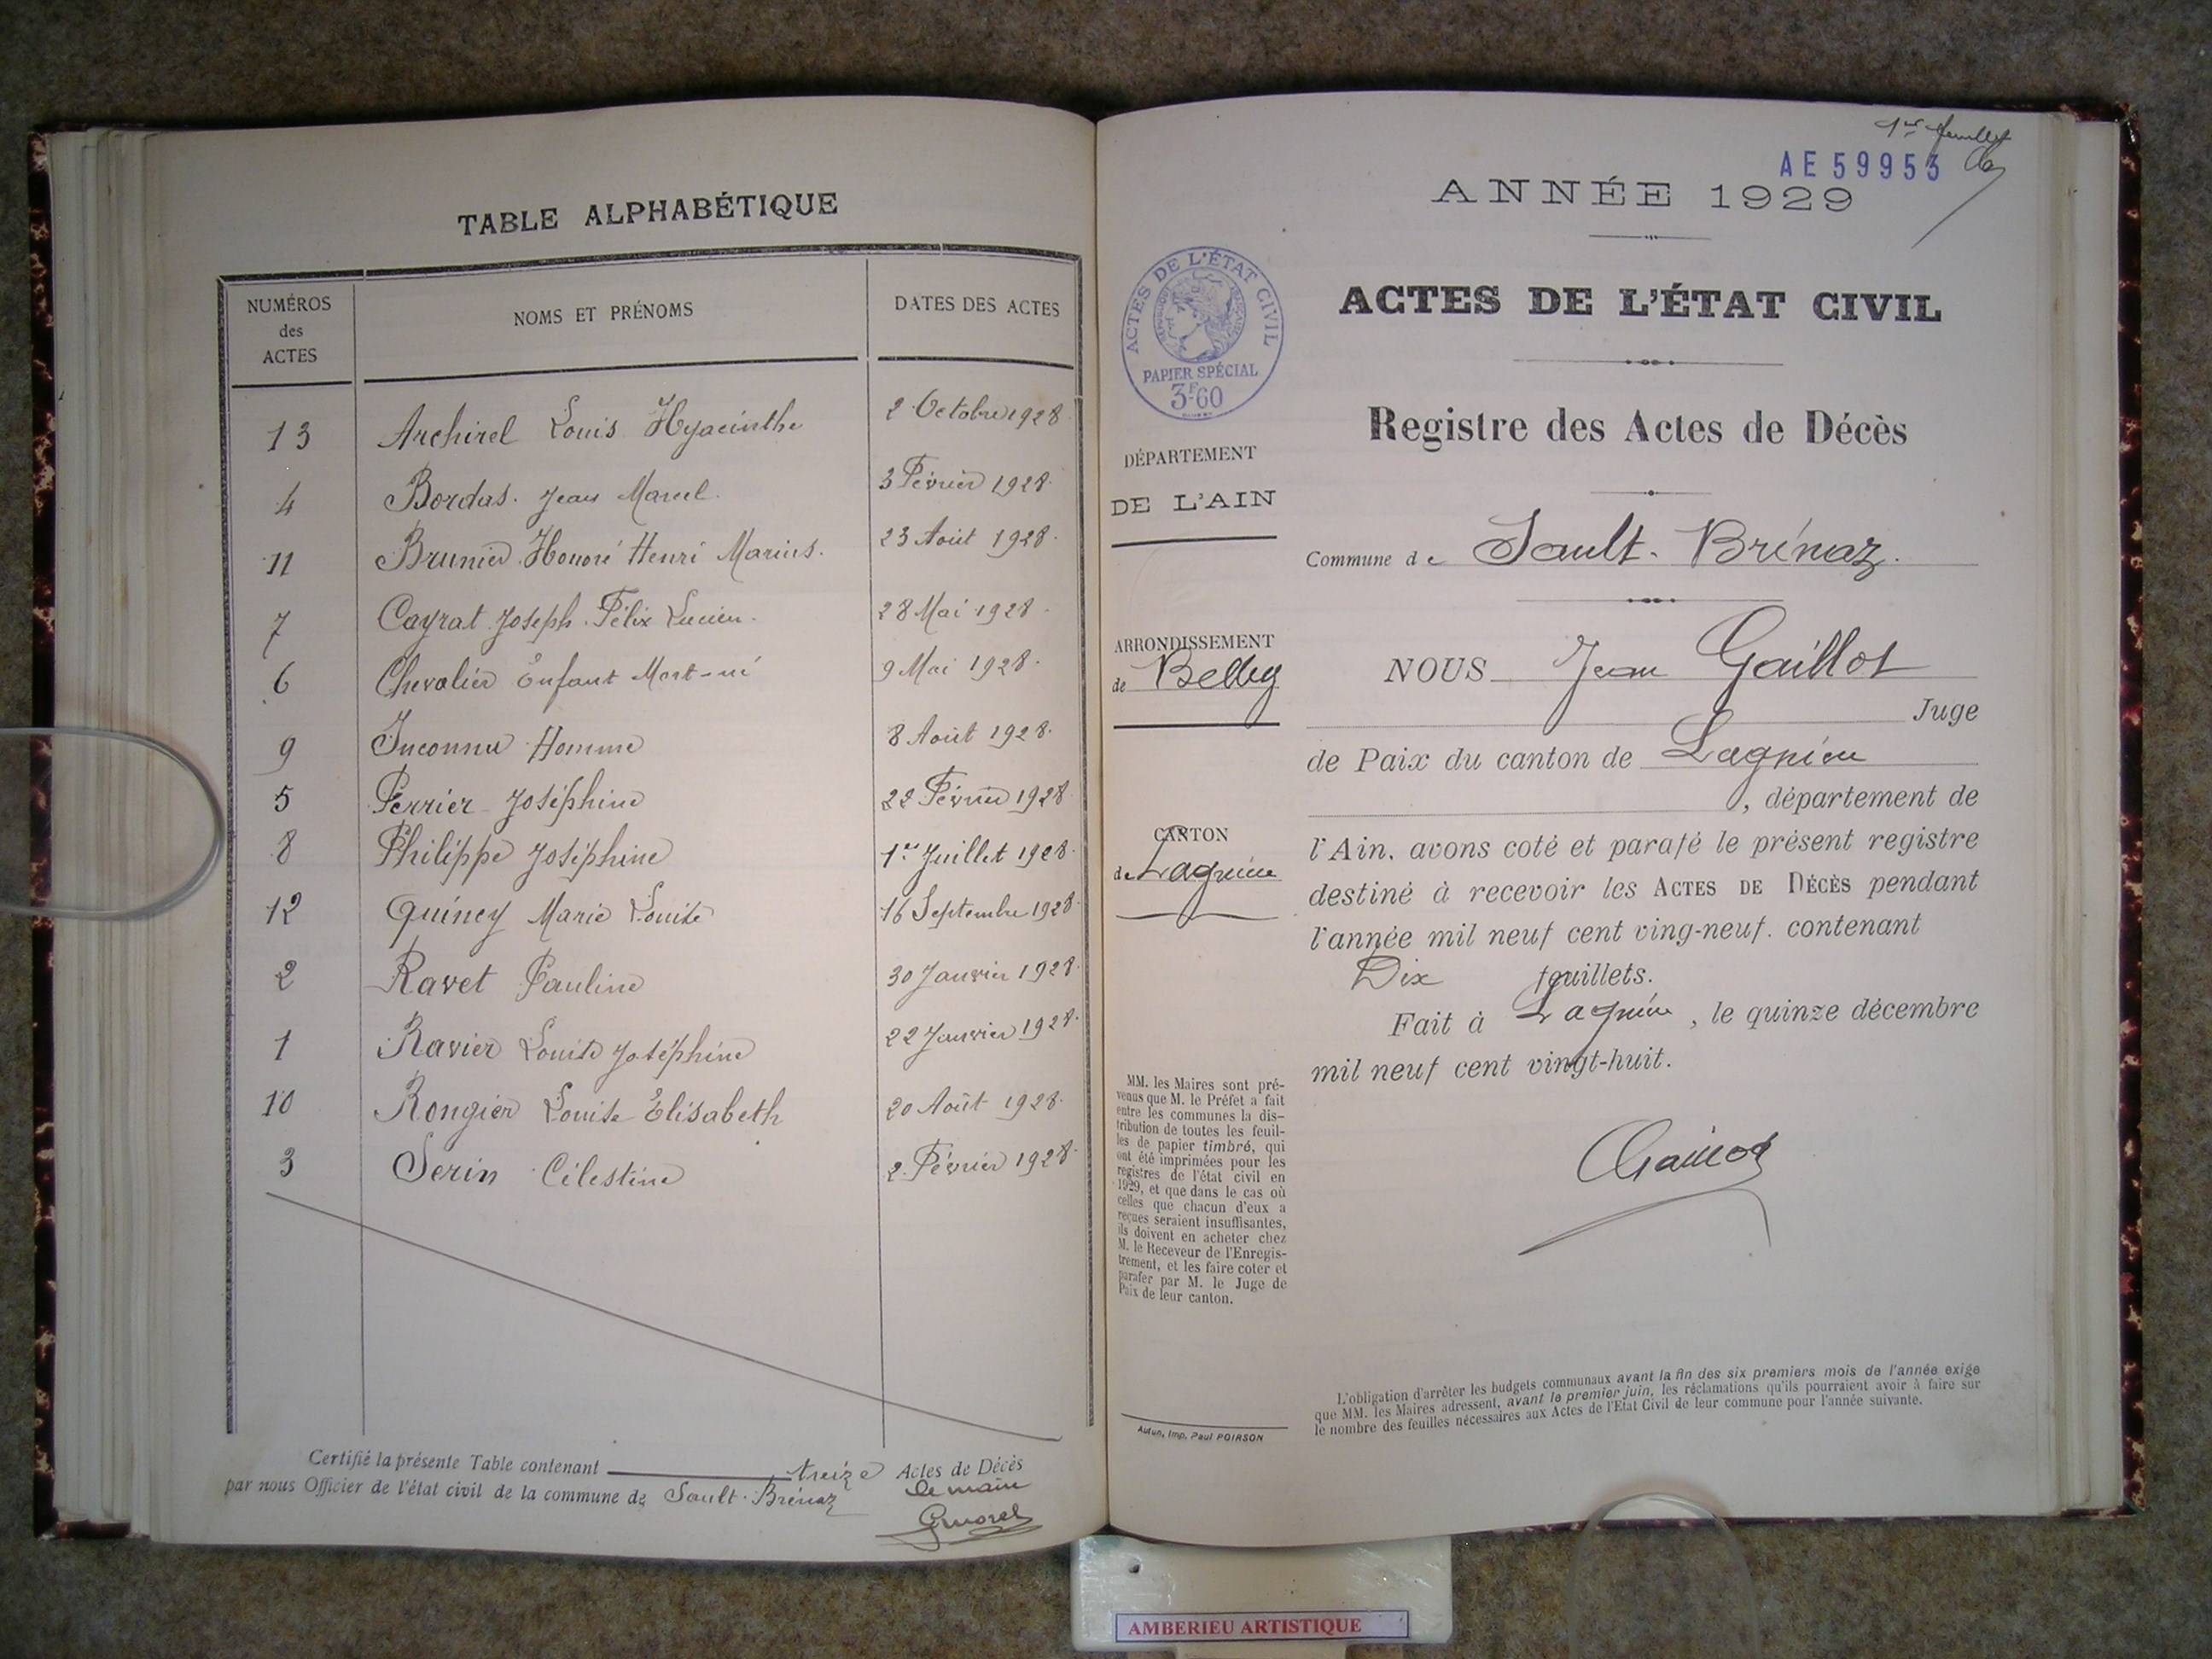 TABLE ALPHABÉTIQUE
NUMÉROS des ACTES NOMS ET PRÉNOMS DATES DES ACTES
13 Archirel Louis Hyacinthe 2 Octobre 1928
4 Bordas Jean Marcel 3 Février 1928
11 Brunier Honoré Henri Marius 23 Août 1928
7 Cayrat Joseph Félix Lucien 28 Mai 1928
6 Chevalier Enfant Mort-né 9 Mai 1928
9 Inconnu Homme 8 Août 1928
5 Perrier Joséphine 22 Février 1928
8 Philippe Joséphine 1er Juillet 1928
12 Quincy Marie Louise 16 Septembre 1928
2 Ravet Pauline 30 Janvier 1928
1 Ravier Louise Joséphine 22 Janvier 1928
10 Rongier Louise Elisabeth 20 Août 1928
3 Serin Célestine 2 Février 1928
Certifié la présente Table contenant treize Actes de Décès
par nous Officier de l'état civil de la commune de Sault-Brénaz le maire
1er feuillet
AE 59953
ANNÉE 1929
ACTES DE L'ÉTAT CIVIL
PAPIER SPÉCIAL
3F60
ACTES DE L'ÉTAT CIVIL
Registre des Actes de Décès
DÉPARTEMENT
DE L'AIN
Commune de Sault-Brénaz.
ARRONDISSEMENT
de Belley
NOUS Jean Gaillot
Juge
de Paix du canton de Lagnieu
, département de
CANTON
de Lagnieu
l'Ain, avons coté et parafé le présent registre
destiné à recevoir les ACTES DE DÉCÈS pendant
l'année mil neuf cent ving-neuf. contenant
Dix feuillets.
Fait à Lagnieu, le quinze décembre
mil neuf cent vingt-huit.
MM. les Maires sont pré-
venus que M. le Préfet a fait
entre les communes la dis-
tribution de toutes les feuil-
les de papier timbré, qui
ont été imprimées pour les
registres de l'état civil en
1929, et que dans le cas où
celles que chacun d'eux a
reçues seraient insuffisantes,
ils doivent en acheter chez
M. le Receveur de l'Enregis-
trement, et les faire coter et
parafer par M. le Juge de
Paix de leur canton.
L'obligation d'arrêter les budgets communaux avant la fin des six premiers mois de l'année exige
que MM. les Maires adressent, avant le premier juin, les réclamations qu'ils pourraient avoir à faire sur
le nombre des feuilles nécessaires aux Actes de l'Etat Civil de leur commune pour l'année suivante.
Autun, Imp. Paul POIRSON
AMBERIEU ARTISTIQUE